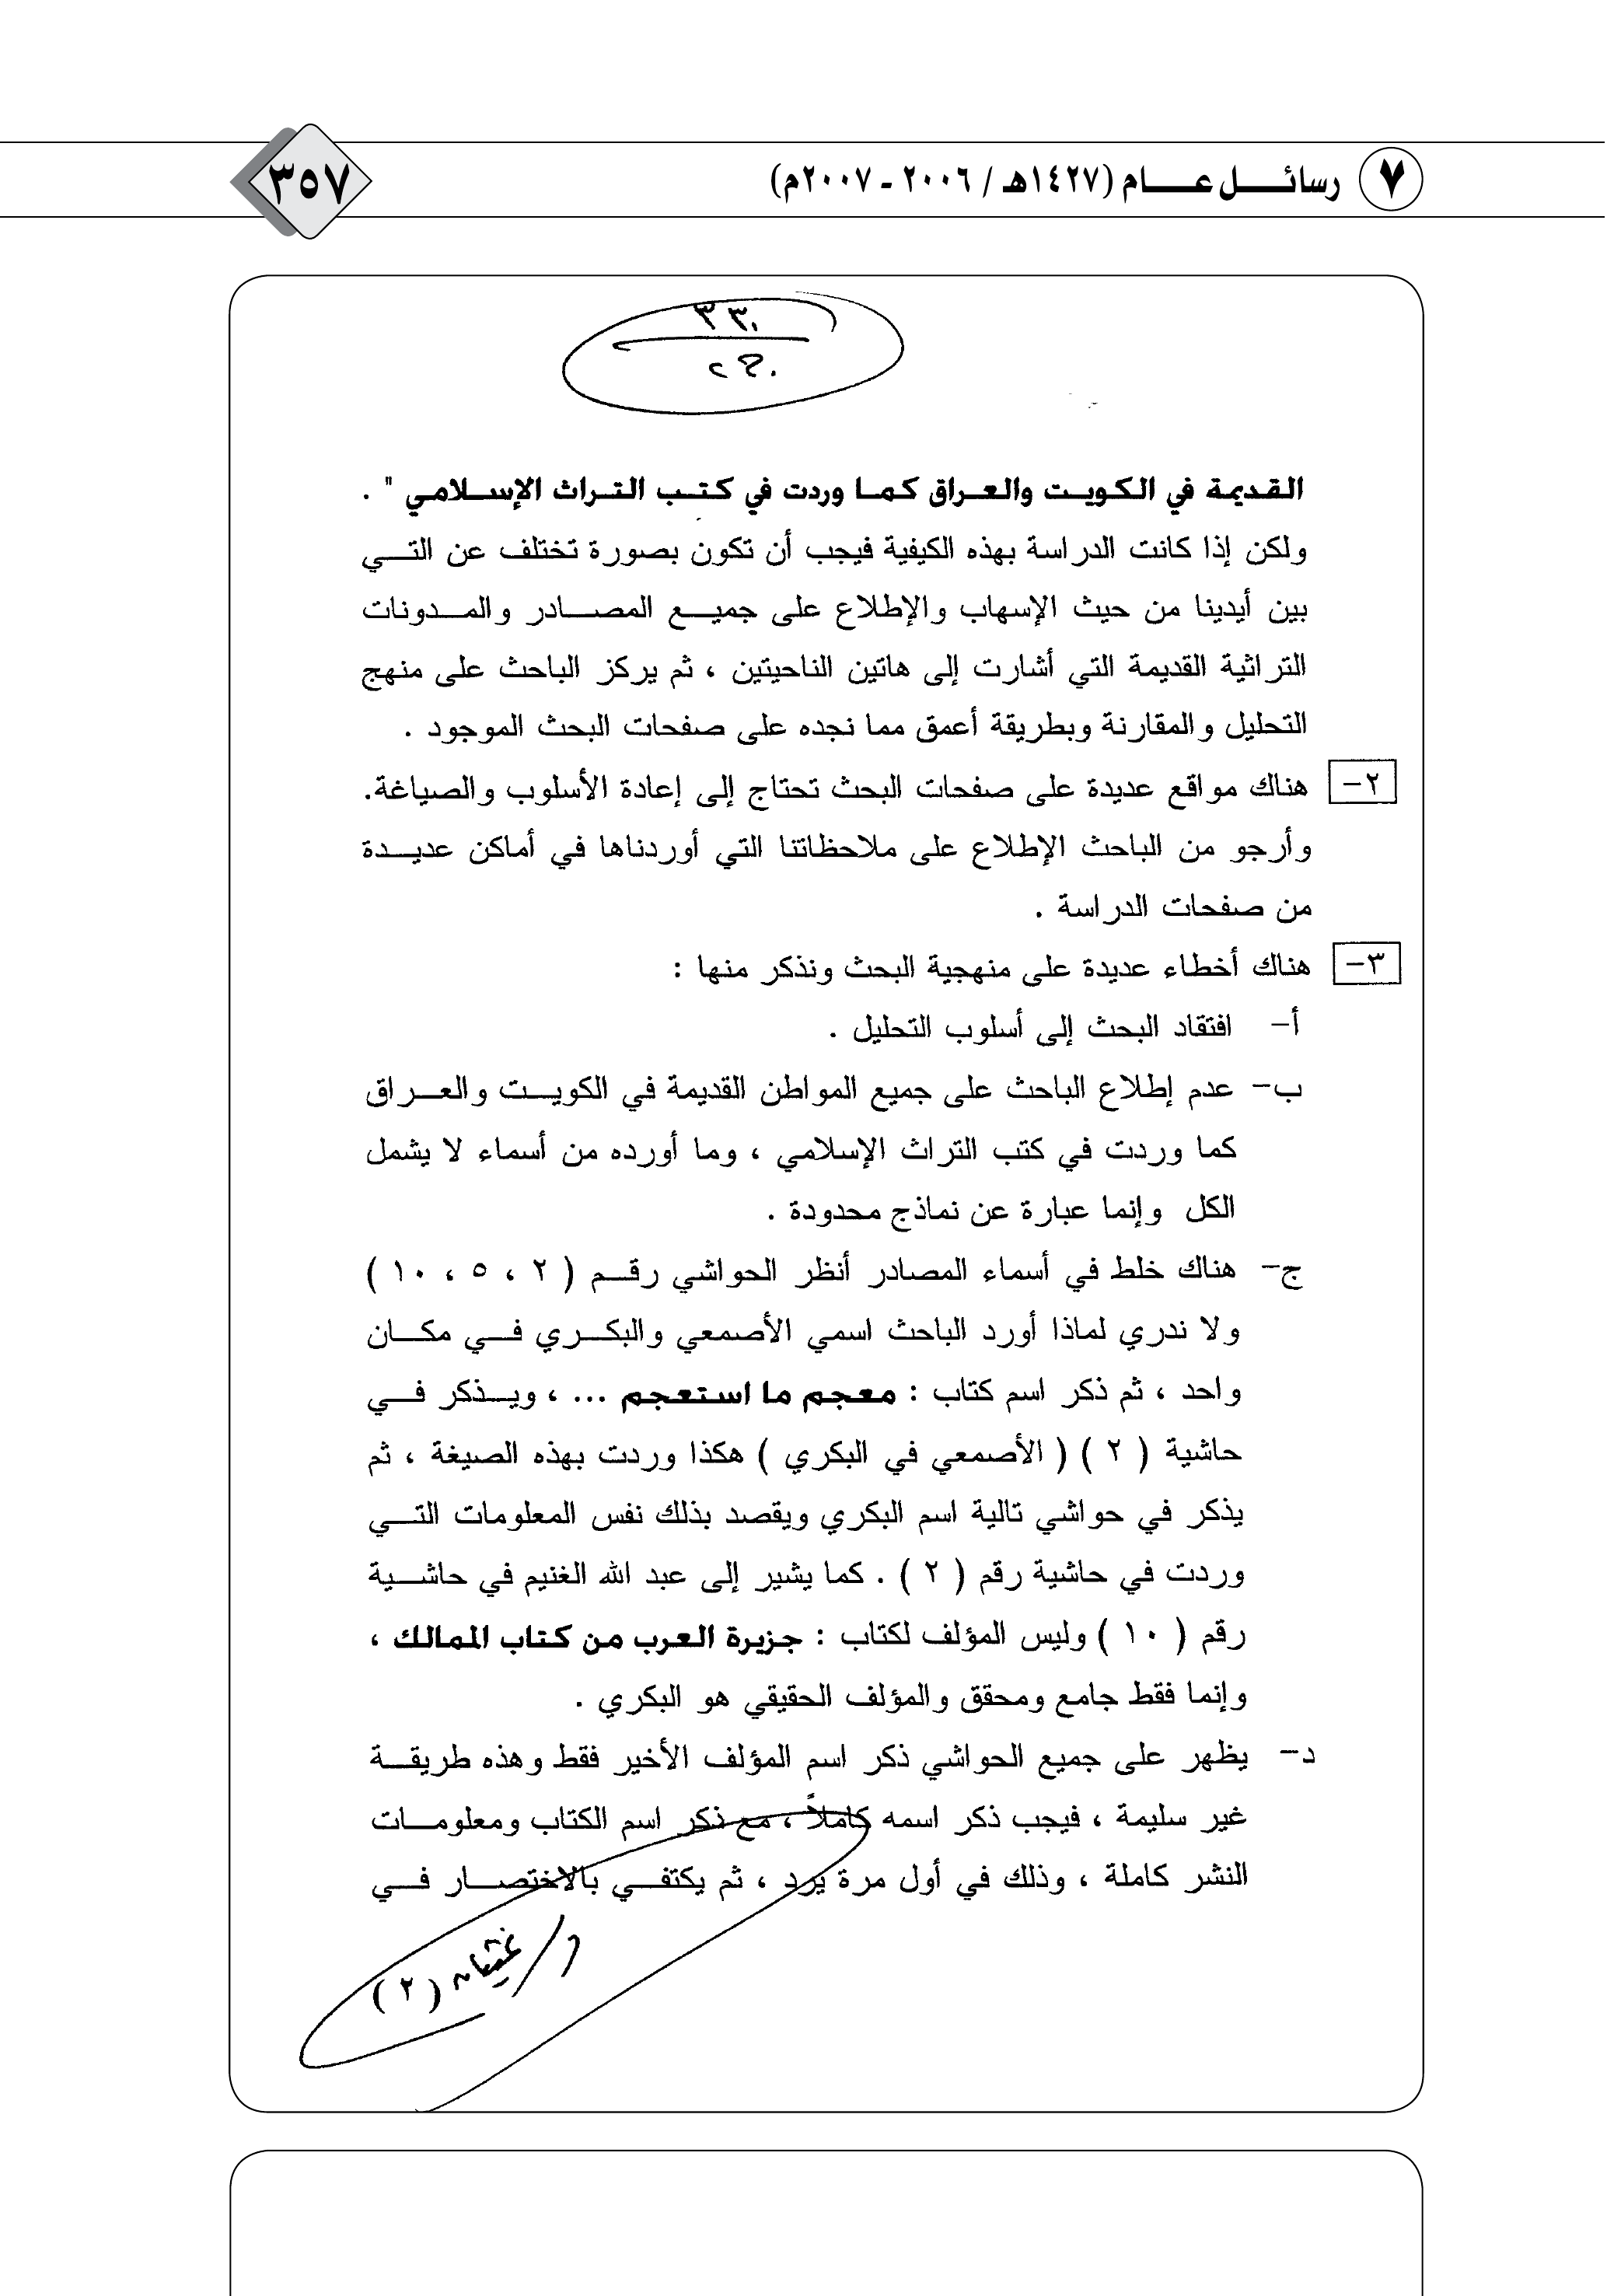 ٧ رسائل عام (١٤٢٧هـ / ٢٠٠٦ - ٢٠٠٧م)
٣٥٧
القديمة في الكويت والعراق كما وردت في كتب التراث الإسلامي " .
ولكن إذا كانت الدراسة بهذه الكيفية فيجب أن تكون بصورة تختلف عن التي
بين أيدينا من حيث الإسهاب والإطلاع على جميع المصادر والمدونات
التراثية القديمة التي أشارت إلى هاتين الناحيتين ، ثم يركز الباحث على منهج
التحليل والمقارنة وبطريقة أعمق مما نجده على صفحات البحث الموجود .
٢- هناك مواقع عديدة على صفحات البحث تحتاج إلى إعادة الأسلوب والصياغة.
وأرجو من الباحث الإطلاع على ملاحظاتنا التي أوردناها في أماكن عديدة
من صفحات الدراسة .
٣- هناك أخطاء عديدة على منهجية البحث ونذكر منها :
أ- افتقاد البحث إلى أسلوب التحليل .
ب- عدم إطلاع الباحث على جميع المواطن القديمة في الكويت والعراق
كما وردت في كتب التراث الإسلامي ، وما أورده من أسماء لا يشمل
الكل وإنما عبارة عن نماذج محدودة .
ج- هناك خلط في أسماء المصادر أنظر الحواشي رقم ( ٢ ، ٥ ، ١٠ )
ولا ندري لماذا أورد الباحث اسمي الأصمعي والبكري في مكان
واحد ، ثم ذكر اسم كتاب : معجم ما استعجم ... ، ويذكر في
حاشية ( ٢ ) ( الأصمعي في البكري ) هكذا وردت بهذه الصيغة ، ثم
يذكر في حواشي تالية اسم البكري ويقصد بذلك نفس المعلومات التي
وردت في حاشية رقم ( ٢ ) . كما يشير إلى عبد الله الغنيم في حاشية
رقم ( ١٠ ) وليس المؤلف لكتاب : جزيرة العرب من كتاب الممالك ،
وإنما فقط جامع ومحقق والمؤلف الحقيقي هو البكري .
د- يظهر على جميع الحواشي ذكر اسم المؤلف الأخير فقط وهذه طريقة
غير سليمة ، فيجب ذكر اسمه كاملاً ، مع ذكر اسم الكتاب ومعلومات
النشر كاملة ، وذلك في أول مرة يرد ، ثم يكتفي بالاختصار في
( ٢ )